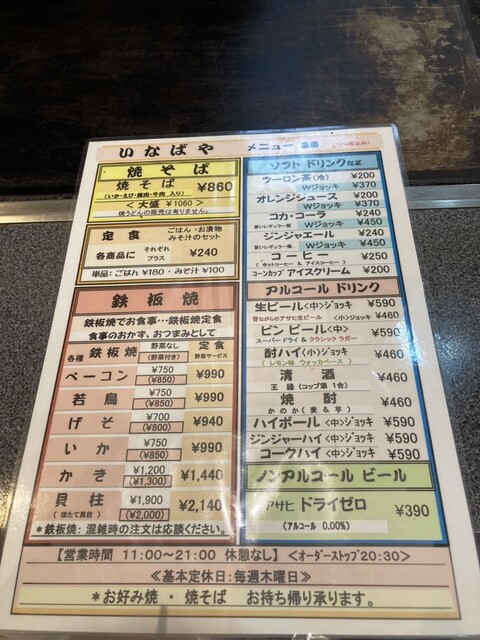 いなばや メニュー
焼そば
焼そば ¥860
(いか・えび・豚肉・牛肉 入り)
< 大盛 ¥1060 >
焼うどんの販売は有りません。
定食 ごはん・お漬物
みそ汁のセット
各商品に それぞれ プラス ¥240
単品:ごはん ¥180・みそ汁 ¥100
鉄板焼
鉄板焼でお食事…鉄板焼定食
食事のおかず、おつまみとして
各種 鉄板焼 野菜なし (野菜付き) 定食 野菜サービス
ベーコン ¥750 (¥850) ¥990
若鳥 ¥750 (¥850) ¥990
げそ ¥700 (¥800) ¥940
いか ¥750 (¥850) ¥990
かき ¥1,200 (¥1,300) ¥1,440
貝柱 (ほたて貝柱) ¥1,900 (¥2,000) ¥2,140
*鉄板焼:混雑時の注文は応談ください。
ソフト ドリンクなど
ウーロン茶(冷) ¥200
Wジョッキ ¥370
オレンジジュース ¥200
Wジョッキ ¥370
コカ・コーラ ¥240
昔いレギュラー瓶 Wジョッキ ¥450
ジンジャエール ¥240
Wジョッキ ¥450
コーヒー ¥250
(ホットコーヒー & アイスコーヒー)
コーンカップ アイスクリーム ¥200
アルコール ドリンク
生ビール<中>ジョッキ ¥590
昔ながらのアサヒ生ビール <小>ジョッキ ¥460
ビン ビール<中> ¥590
スーパードライ & クラシック ラガー
酎ハイ<小>ジョッキ ¥460
(レモン味 ウォッカベース)
清酒 ¥460
王禄(コップ酒 1合)
焼酎 ¥460
かのか(麦&芋)
ハイボール<中>ジョッキ ¥590
ジンジャーハイ<中>ジョッキ ¥590
コークハイ<中>ジョッキ ¥590
ノンアルコール ビール
アサヒ ドライゼロ ¥390
(アルコール 0.00%)
【営業時間 11:00~21:00 休憩なし】<オーダーストップ20:30>
≪基本定休日:毎週木曜日≫
*お好み焼・焼そば お持ち帰り承ります。